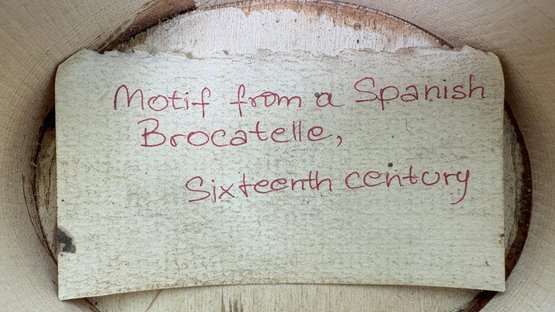 Motif from a Spanish
Brocatelle,
Sixteenth century